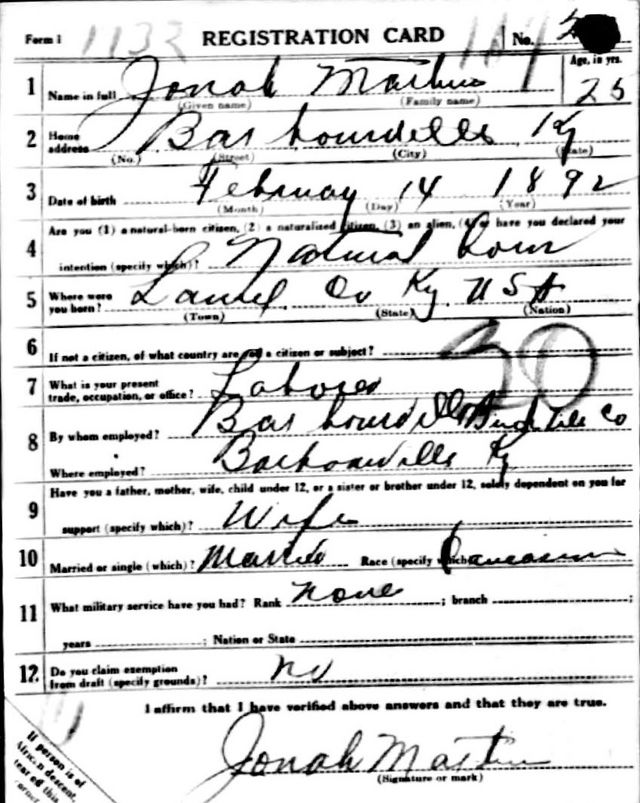 Form 1 1132 REGISTRATION CARD 114 No.
Age, in yrs.
1 Name in full Jonah Martin 25
(Given name) (Family name)
2 Home address Barbourville Ky
(No.) (Street) (City) (State)
3 Date of birth February 14 1892
(Month) (Day) (Year)
Are you (1) a natural-born citizen, (2) a naturalized citizen, (3) an alien, (4) or have you declared your
4 intention (specify which)? Natural born
5 Where were you born? Laurel Co Ky USA
(Town) (State) (Nation)
6 If not a citizen, of what country are you a citizen or subject?
30
7 What is your present trade, occupation, or office? Laborer
8 By whom employed? Barbourville Brick Tile Co
Where employed? Barbourville Ky
Have you a father, mother, wife, child under 12, or a sister or brother under 12, solely dependent on you for
9 support (specify which)? Wife
10 Married or single (which)? Married Race (specify which)? Caucasian
11 What military service have you had? Rank None ; branch ;
years ; Nation or State
12 Do you claim exemption from draft (specify grounds)? No
I affirm that I have verified above answers and that they are true.
Jonah Martin
(Signature or mark)
If person is of
African descent,
tear off this
corner